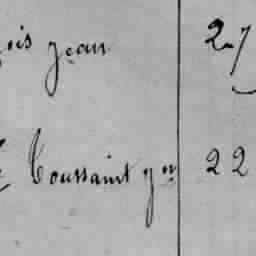 ois jean 27
Toussaint yn 22